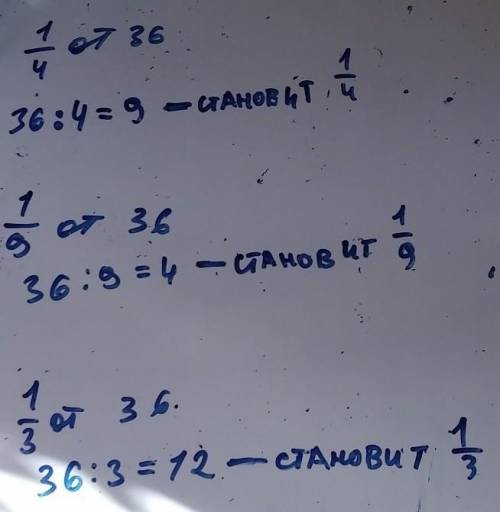 1/4 от 36
36:4=9 – становит 1/4
1/9 от 36
36:9=4 – становит 1/9
1/3 от 36.
36:3=12 – становит 1/3